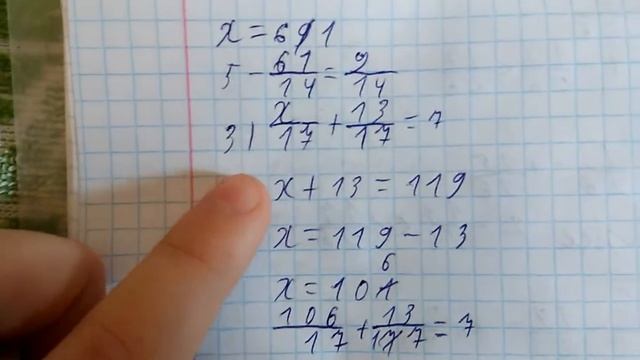 x = 61
5 - 61/14 = 9/14
3) x/17 + 13/17 = 7
x + 13 = 119
x = 119 - 13
x = 106
106/17 + 13/17 = 7